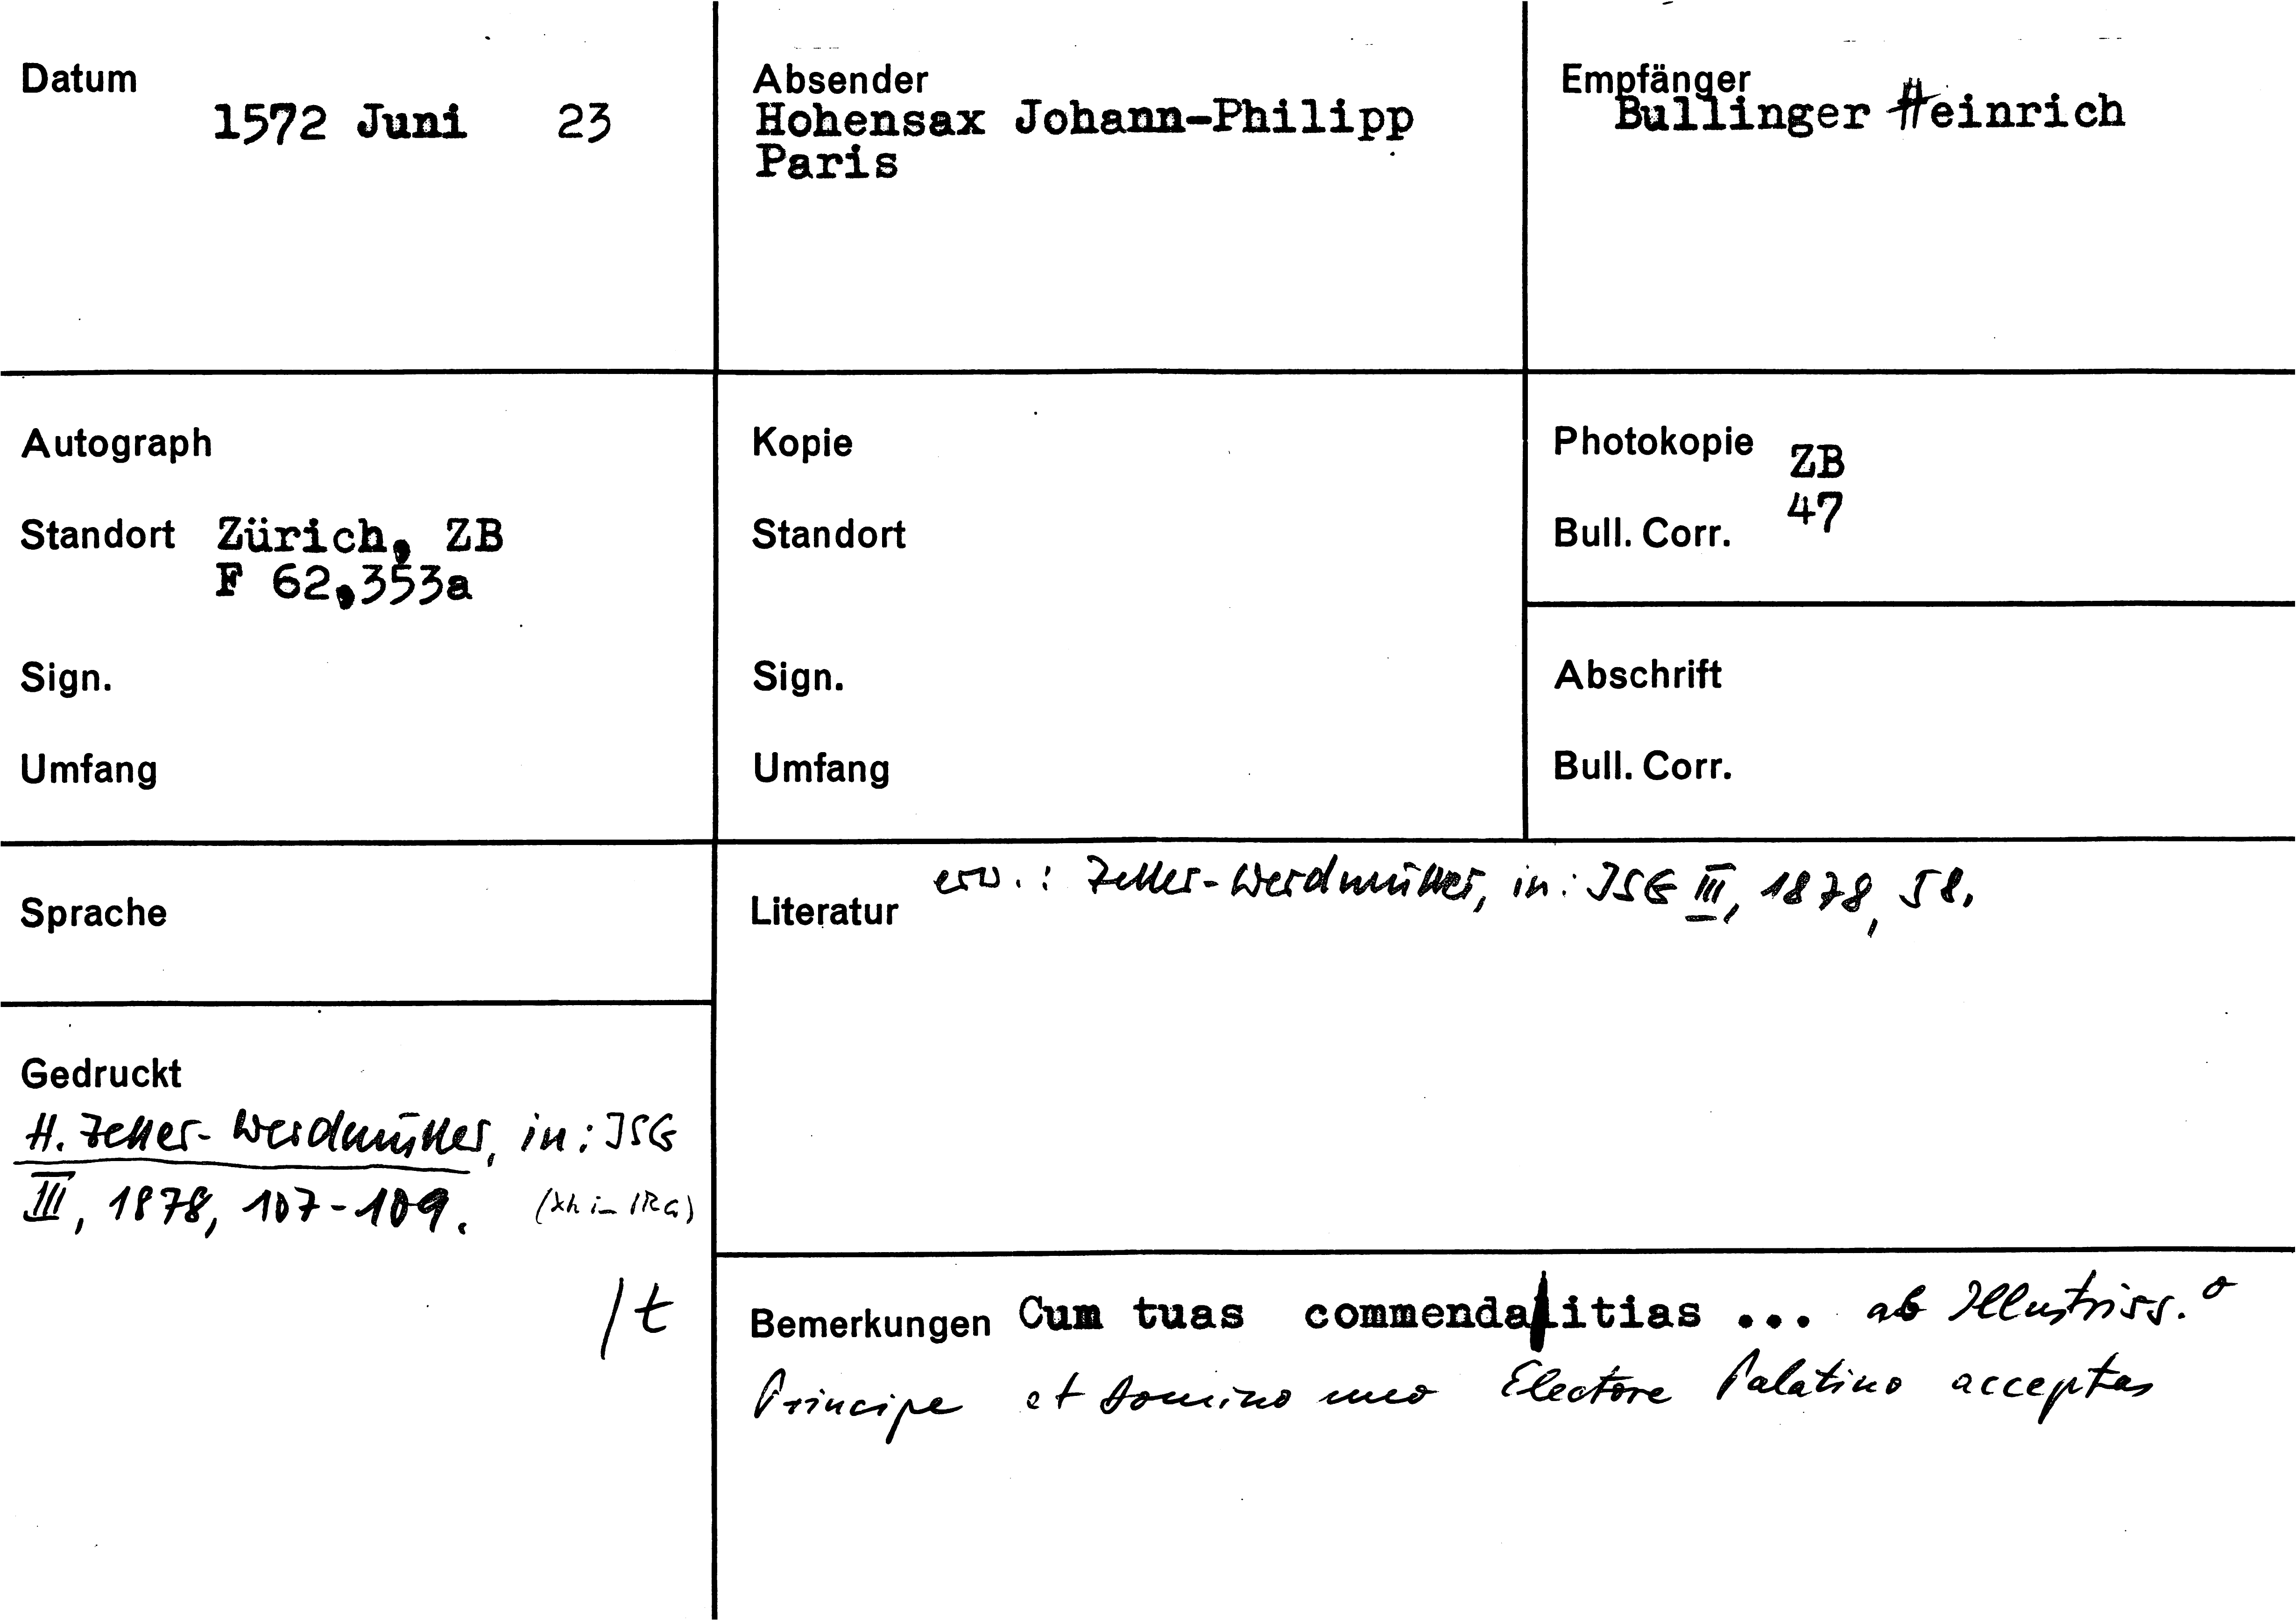 Datum
1572 Juni 23
Absender
Hohensax Johann-Philipp
Paris
Empfänger
Bullinger Heinrich
Autograph
Standort Zürich, ZB
F 62,353a
Sign.
Umfang
Kopie
Standort
Sign.
Umfang
Photokopie ZB
Bull. Corr. 47
Abschrift
Bull. Corr.
Sprache
Literatur erw.: Zeller-Werdmüller, in: JSG III, 1878, 58.
Gedruckt
H. Zeller-Werdmüller, in: JSG
III, 1878, 107-109.
/t
Bemerkungen Cum tuas commendalitias ... ab Illustriss.o
Principe et domino meo Electore Palatino acceptas